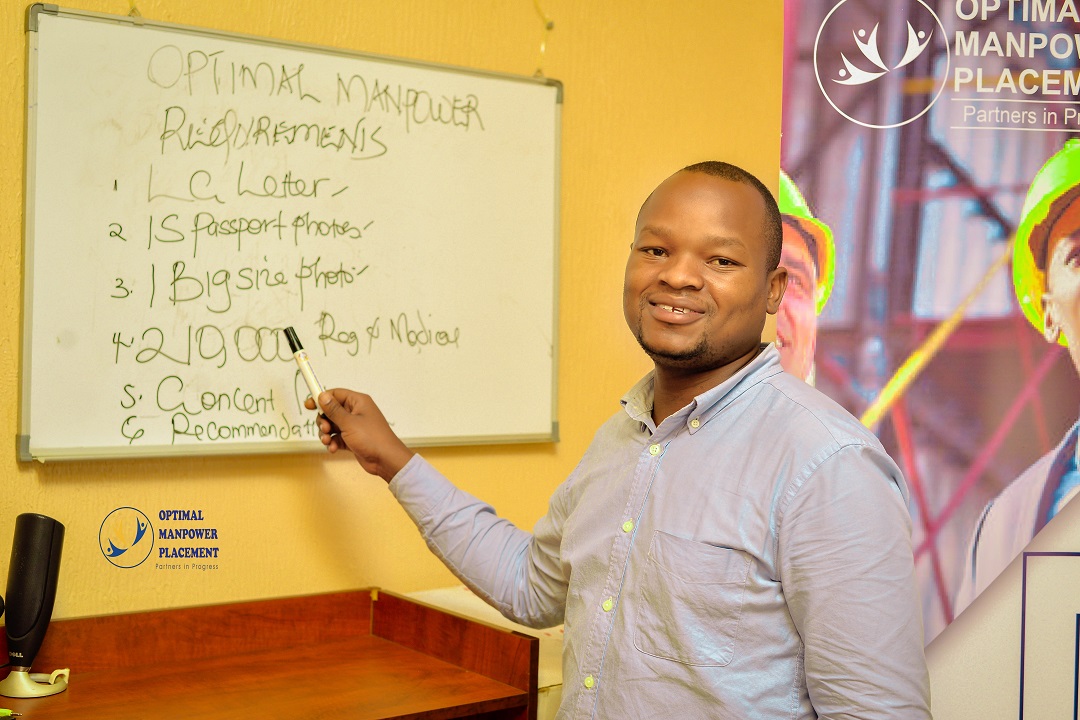 OPTIMAL MANPOWER
REQUIREMENTS
1 LC Letter
2 15 Passport photos
3. 1 Big size photo
4 210,000 Reg & Medical
5. Concent
6 Recommendat
OPTIMAL
MANPOWER
PLACEMENT
Partners in Progress
OPTIMA
MANPOW
PLACEM
Partners in Pr
DELL